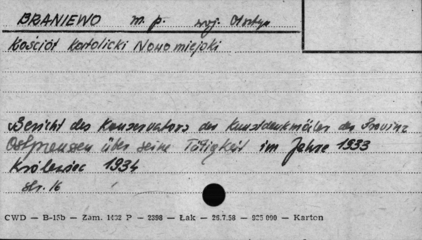 BRANIEWO m. p. woj. Olsztyn
Kościół Katolicki Nowomiejski
Bericht des Konservators der Kunstdenkmäler der Provinz
Ostpreussen über seine Tätigkeit im Jahre 1933
Królewiec 1934
str. 16
CWD — B-15b — Zam. 1432 P — 2398 — Łak — 26.7.58 — 925 000 — Karton